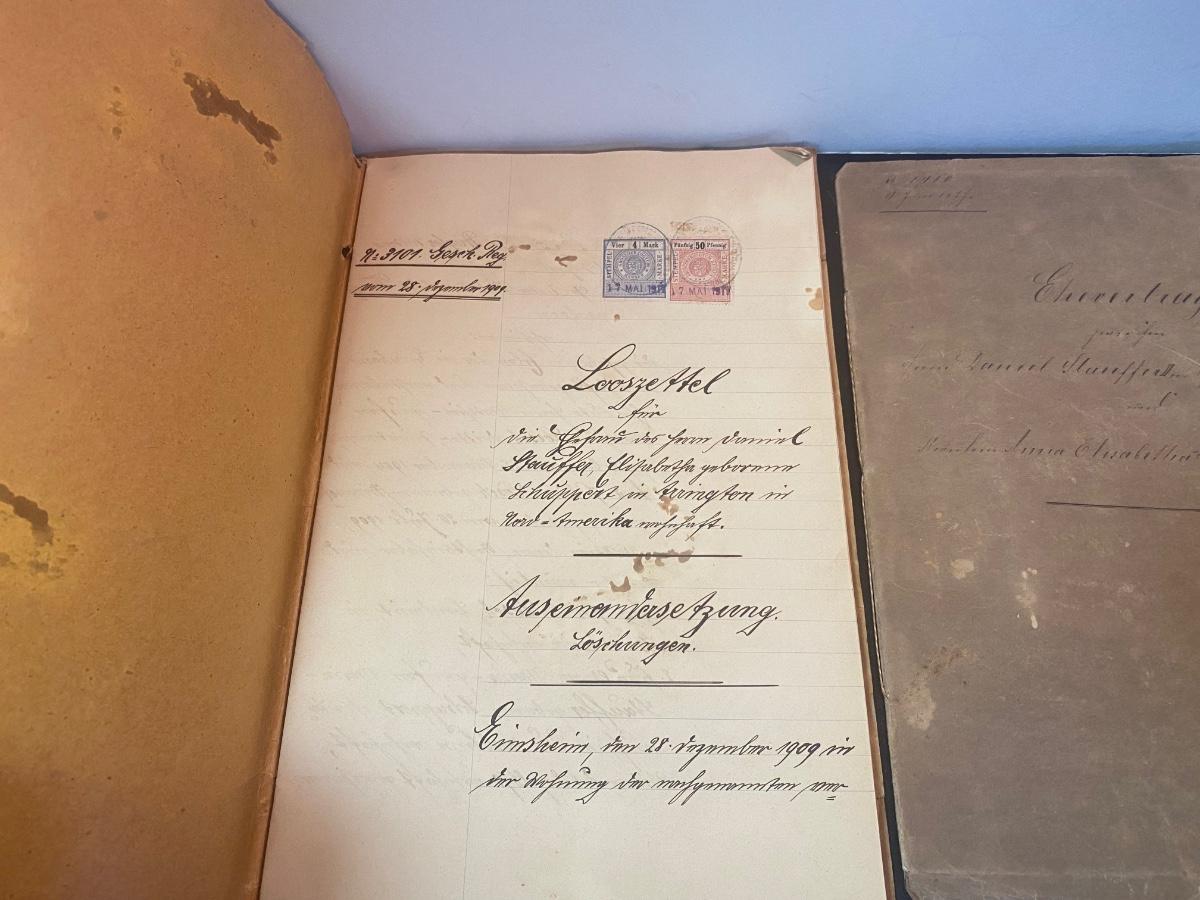 No 3101. Gesch. Reg.
vom 28. Dezember 1909.
Vier 4 Mark
STEMPEL MARKE
17 MAI 1911
Fünfzig 50 Pfennig
STEMPEL MARKE
17 MAI 1911
Looszettel
für
die Ehefrau des Herrn Daniel
Stauffer, Elisabetha geborene
Schuppert, in Arrington in
Nord-Amerika wohnhaft.
Auseinandersetzung.
Löschungen.
Eimsheim, den 28. Dezember 1909 in
der Wohnung der nachgenannten ver=
Ehevertrag
zwischen
Daniel Stauffer II
und
Fräulein Anna Elisabetha